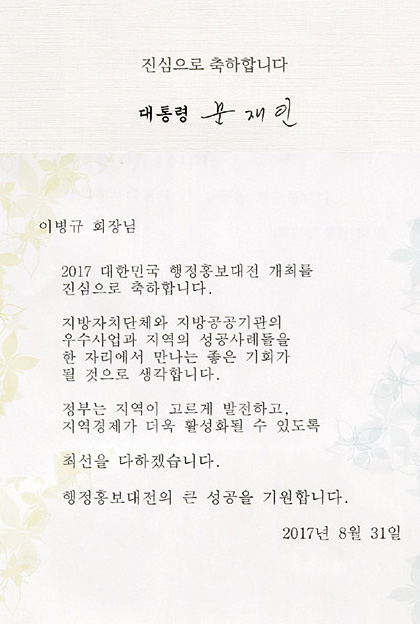 진심으로 축하합니다
대통령 문재인
이병규 회장님
2017 대한민국 행정홍보대전 개최를
진심으로 축하합니다.
지방자치단체와 지방공공기관의
우수사업과 지역의 성공사례들을
한 자리에서 만나는 좋은 기회가
될 것으로 생각합니다.
정부는 지역이 고르게 발전하고,
지역경제가 더욱 활성화될 수 있도록
최선을 다하겠습니다.
행정홍보대전의 큰 성공을 기원합니다.
2017년 8월 31일